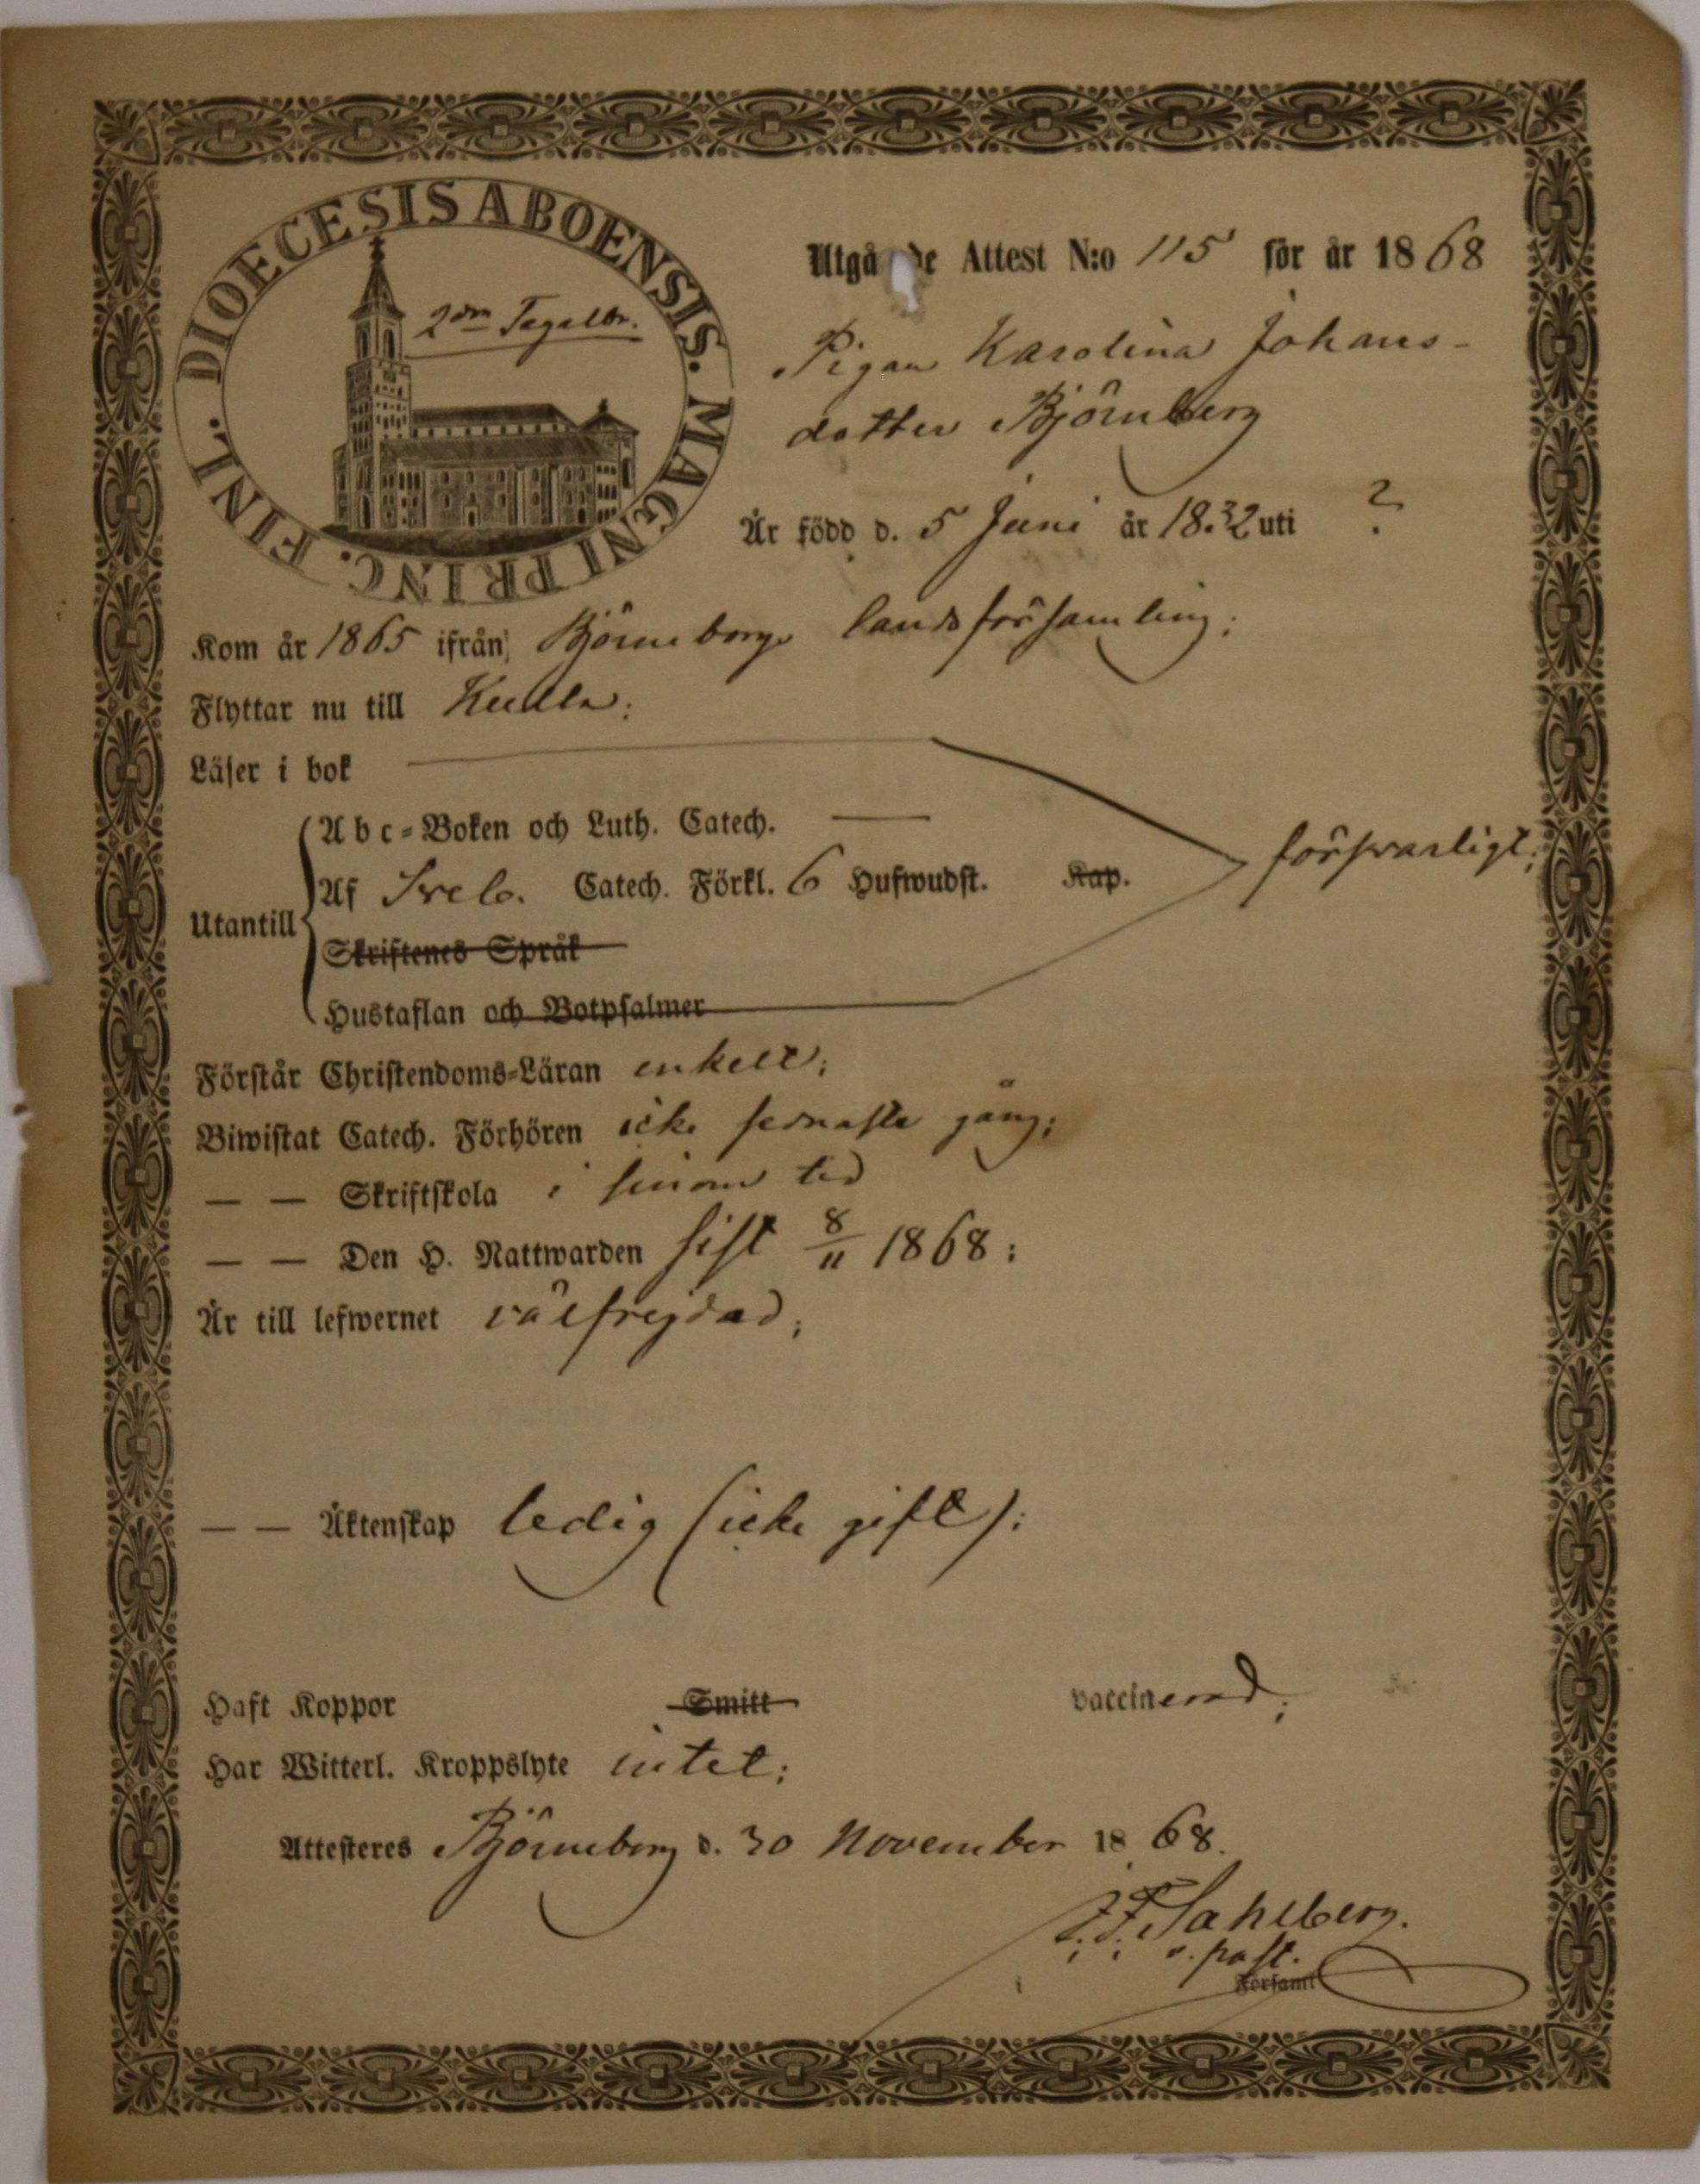 DIOECESIS ABOENSIS. MAGNI PRINC. FINL.
Utgå de Attest N:o 115 för år 1868
Pigan Karolina Johans-
dotter Björnberg
Är född d. 5 Juni år 1832 uti ?
Kom år 1865 ifrån Björneborgs landsförsamling;
Flyttar nu till Kulla;
Läser i bok
Abc-Boken och Luth. Catech. —
Af Sveb. Catech. Förkl. 6 Hufwudst. Kap. försvarligt;
Utantill
Skriftenes Språk
Hustaflan och Botpsalmer
Förstår Christendoms-Läran enkelt;
Biwistat Catech. Förhören icke sednaste gång;
— — Skriftskola i sinom tid
— — Den H. Nattwarden sist 8/11 1868;
Är till lefwernet välfrejdad;
— — Äktenskap ledig (icke gift);
Haft Koppor Smitt vaccinerad;
Har Witterl. Kroppslyte intet;
Attesteres Björneborg d. 30 November 1868.
F. Sahlberg.
v. past.
Församl